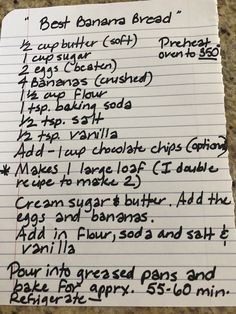 "Best Banana Bread"
½ cup butter (soft)
1 cup sugar
2 eggs (beaten)
4 Bananas (crushed)
1½ cup flour
1 tsp. baking soda
½ tsp. salt
½ tsp. vanilla
Add - 1 cup chocolate chips (optional)
Preheat
oven to 350°
* Makes 1 large loaf (I double
recipe to make 2)
Cream sugar & butter. Add the
eggs and bananas.
Add in flour, soda and salt &
vanilla
Pour into greased pans and
bake for apprx. 55-60 min.
Refrigerate